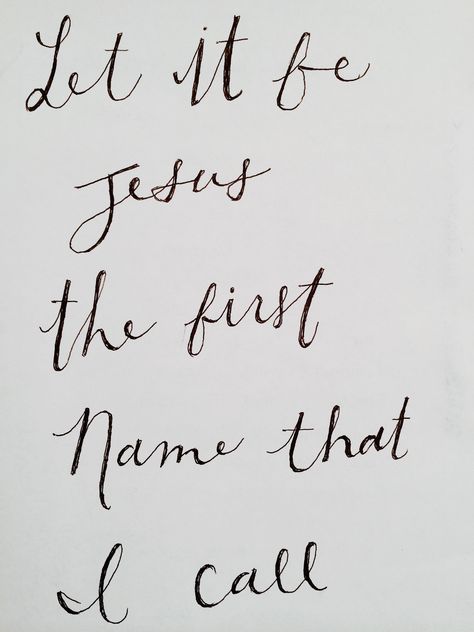 Let it be
Jesus
the first
Name that
I call